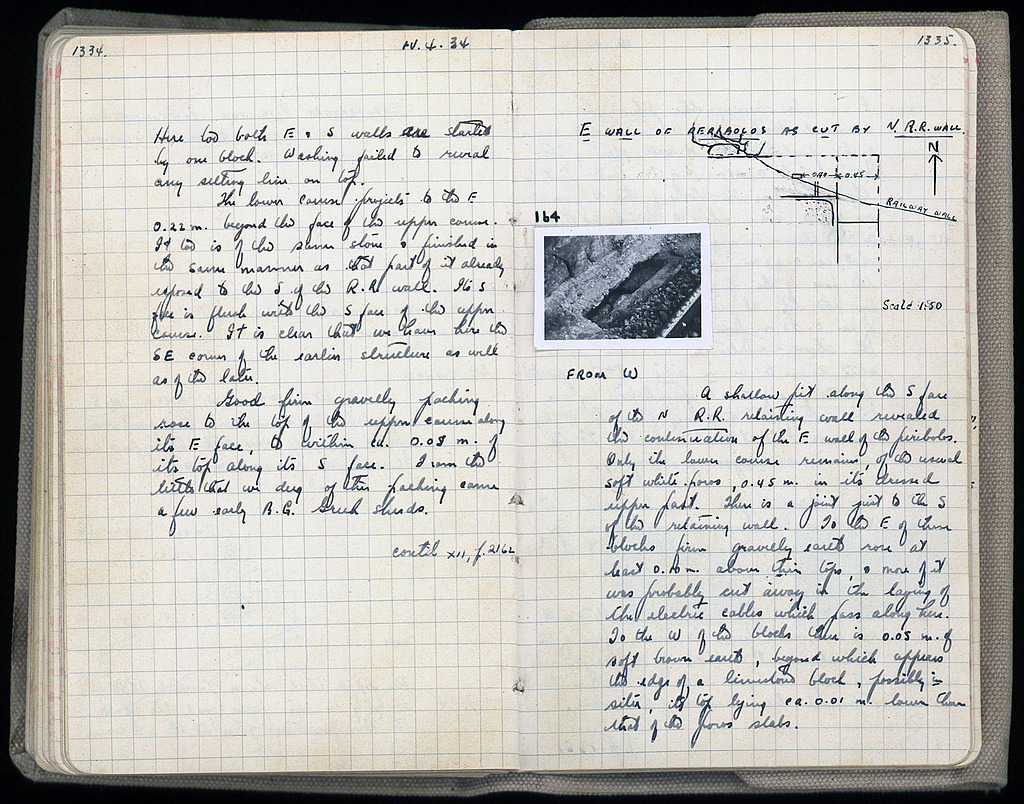 1334.
IV. 4. 34
Here too both E & S walls are started
by one block. Washing failed to reveal
any setting line on top.
The lower course projects to the E
0.22 m. beyond the face of the upper course.
It too is of the same stone & finished in
the same manner as that part of it already
exposed to the S of the R.R. wall. Its S
face is flush with the S face of the upper
course. It is clear that we have here the
SE corner of the earlier structure as well
as of the later.
Good firm gravelly packing
rose to the top of the upper course along
its E face, to within ca. 0.08 m. of
its top along its S face. From the
little that we dug of this packing came
a few early B.G. Greek sherds.
contd XII, p. 2162
1335.
E WALL OF PERIBOLOS AS CUT BY N. R.R. WALL.
N
0.40
0.45
RAILWAY WALL
Scale 1:50
164
FROM W
A shallow pit along the S face
of the N R.R. retaining wall revealed
the continuation of the E wall of the peribolos.
Only the lower course remains, of the usual
soft white poros, 0.45 m. in its dressed
upper part. There is a joint just to the S
of the retaining wall. To the E of these
blocks firm gravelly earth rose at
least 0.10 m. above their tops, & more of it
was probably cut away in the laying of
the electric cables which pass along here.
To the W of the blocks there is 0.05 m. of
soft brown earth, beyond which appears
the edge of a limestone block, possibly in
situ, its top lying ca. 0.01 m. lower than
that of the poros slabs.